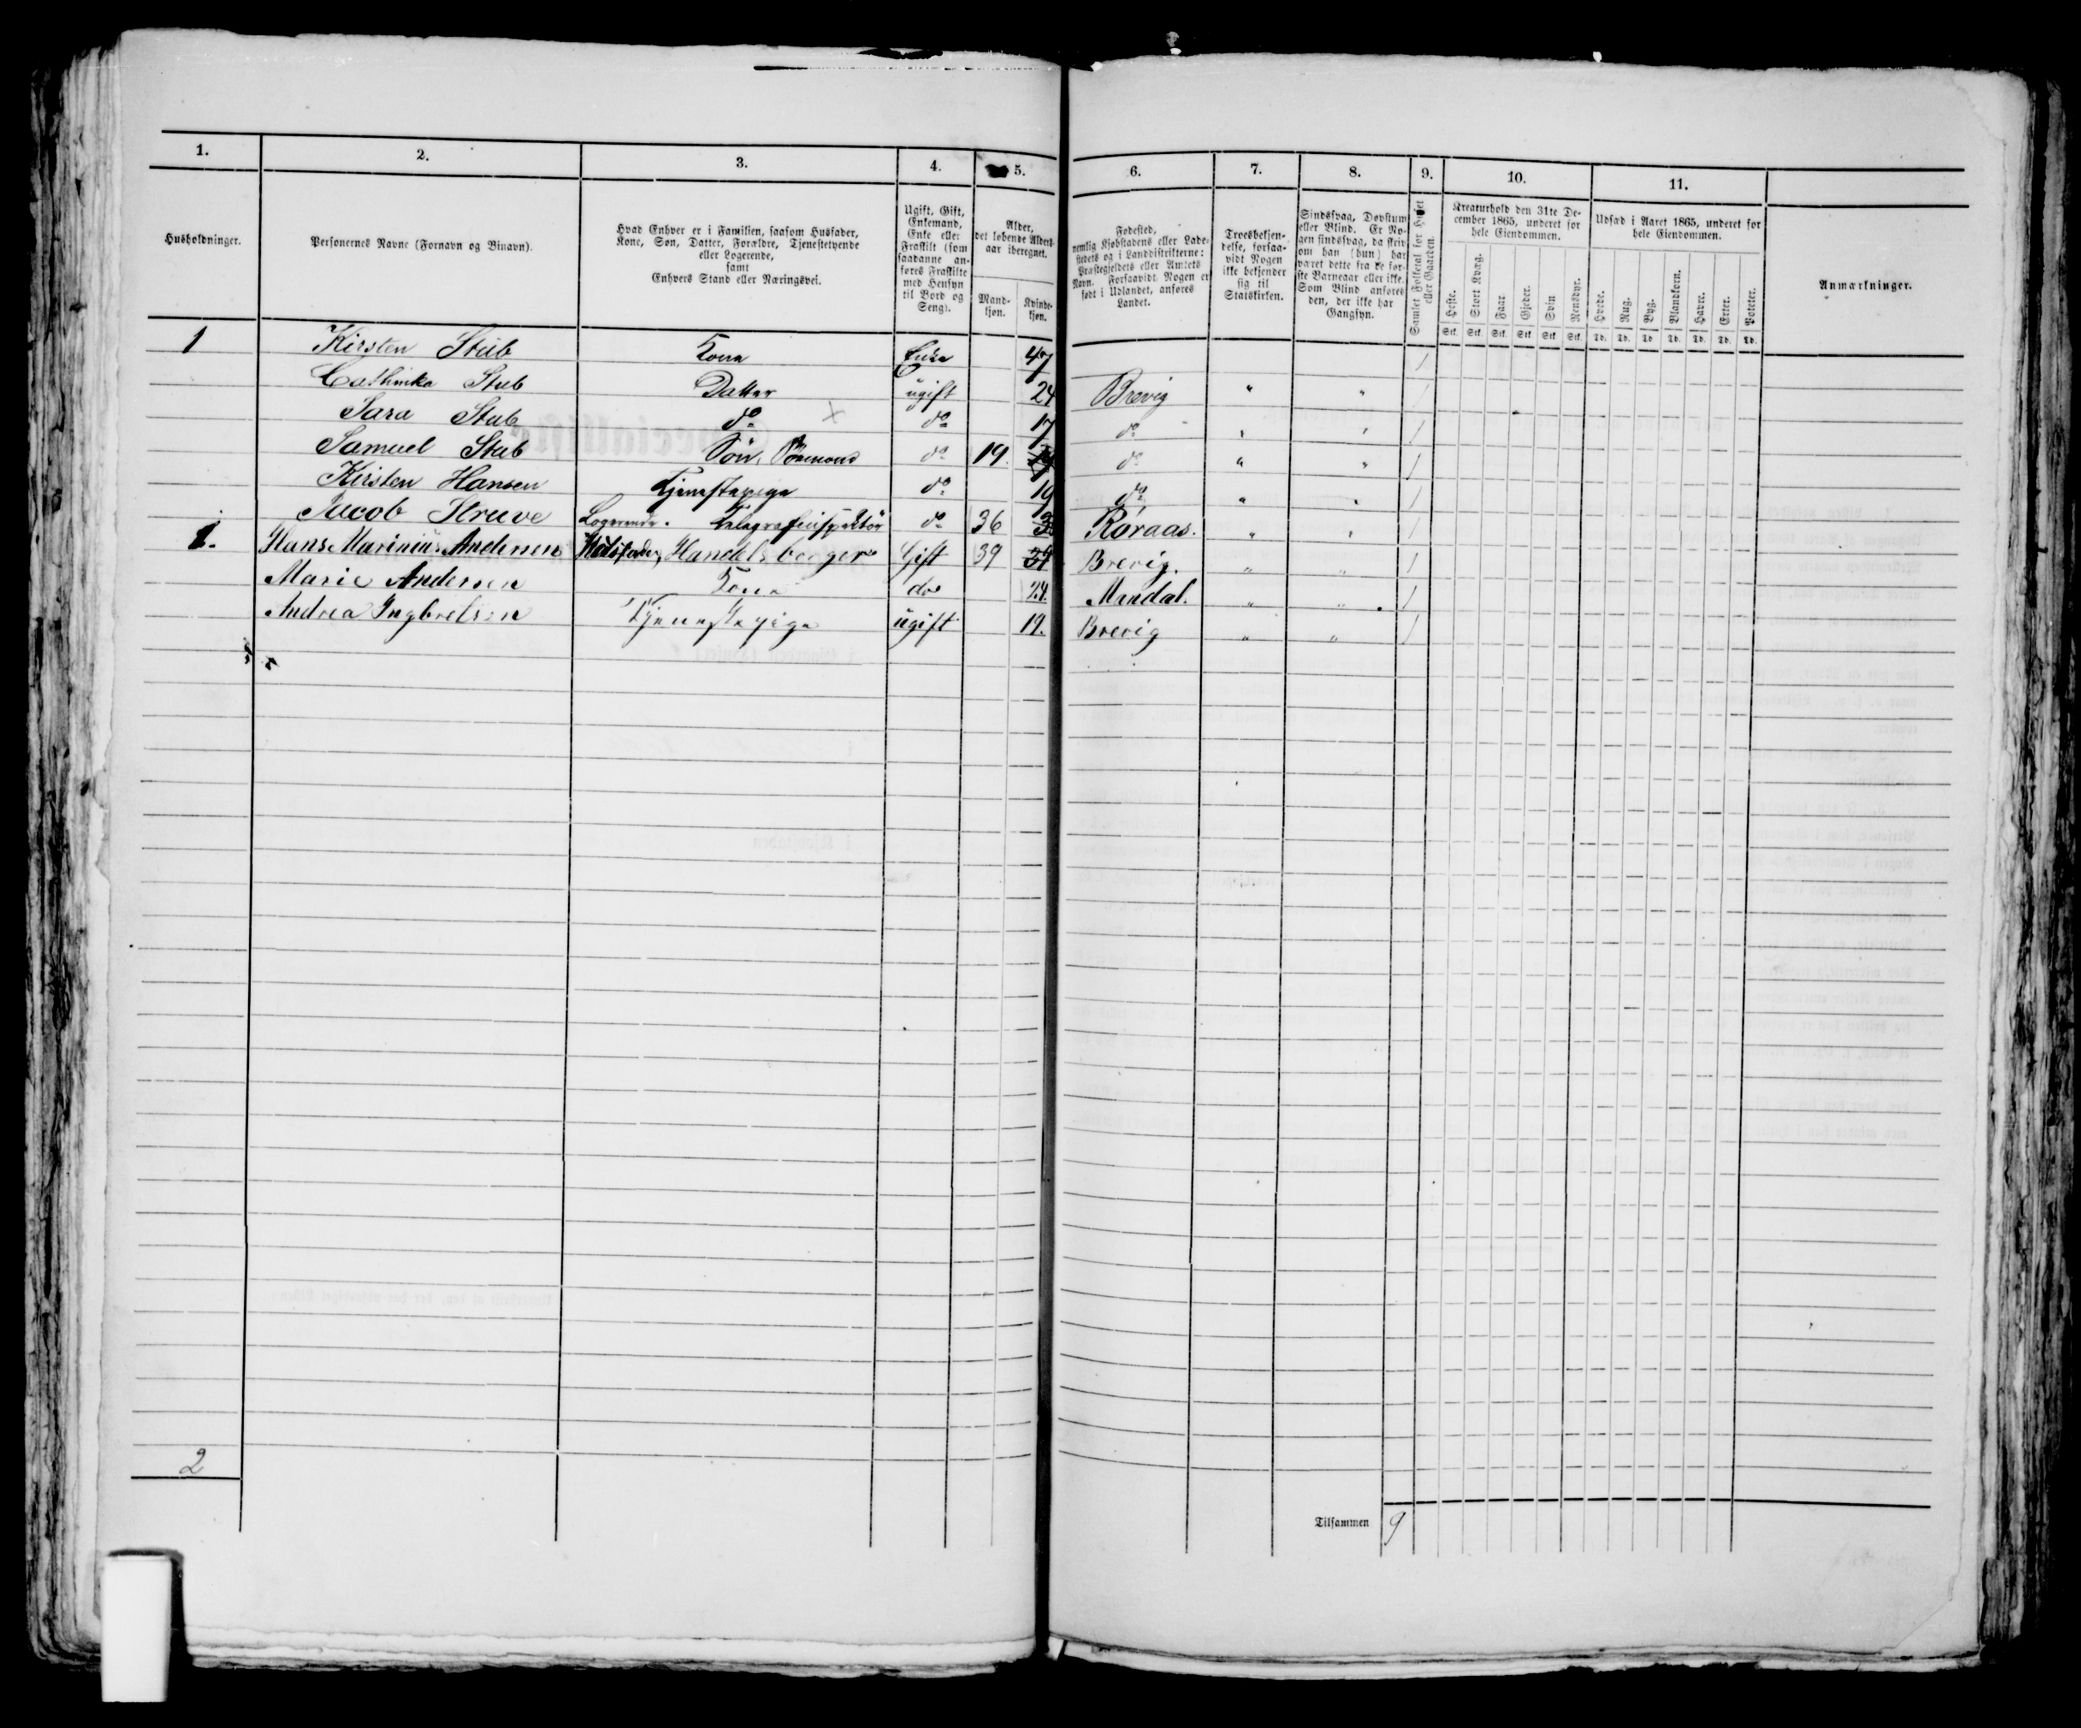 1. 2. 3. 4. 5. 6. 7. 8. 9. 10. 11.
Husholdninger.
Personernes Navne (Fornavn og Binavn).
Hvad Enhver er i Familien, saasom Husfader,
Kone, Søn, Datter, Forældre, Tjenestetyende
eller Logerende,
samt
Enhvers Stand eller Næringsvei.
Ugift, Gift,
Enkemand,
Enke eller
Fraskilt (som
saadanne an-
føres Fraskilte
med Hensyn
til Bord og
Seng).
Alder,
det løbende Alders-
aar iberegnet.
Mand-
kjøn.
Kvinde-
kjøn.
Fødested,
nemlig Kjøbstadens eller Lade-
stedets og i Landdistrikterne:
Præstegjeldets eller Amtets
Navn. Forsaavidt Nogen er
født i Udlandet, anføres
Landet.
Troesbekjen-
delse, forsaa-
vidt Nogen
ikke bekjender
sig til
Statskirken.
Sindssvag, Døvstum
eller Blind. Er No-
gen sindssvag, da skriv
om han (hun) har
været dette fra de før-
ste Barneaar eller ikke.
Som Blind anføres
den, der ikke har
Gangsyn.
Samlet Folketal for Huset
eller Gaarden.
Kreaturhold den 31te De-
cember 1865, underet for
hele Eiendommen.
Heste. Stort Kvæg. Faar. Gjeder. Svin Rensdyr.
Stk. Stk. Stk. Stk. Stk Stk.
Udsæd i Aaret 1865, underet for
hele Eiendommen.
Hvede. Rug. Byg. Blandkorn. Havre. Erter. Poteter.
Td. Td. Td Td. Td. Td. Td.
Anmærkninger.
1 Kirsten Stub Kone Enke 47 1
Cathinka Stub Datter ugift 24 Brevig " " 1
Sara Stub do do 17 do " " 1
Samuel Stub Søn, do 19 do " " 1
Kirsten Hansen Tjenestepige do 19 do " " 1
Jacob Struve Logerende. Telegrafinspektør do 36 Røraas. " " 1
1. Hans Marinius Andersen Husfader, Handelsborger Gift 39 Brevig. " " 1
Marie Andersen Kone do 24. Mandal. " " 1
Andrea Ingbretsen Tjenestepige ugift 19. Brevig " " 1
2
Tilsammen 9